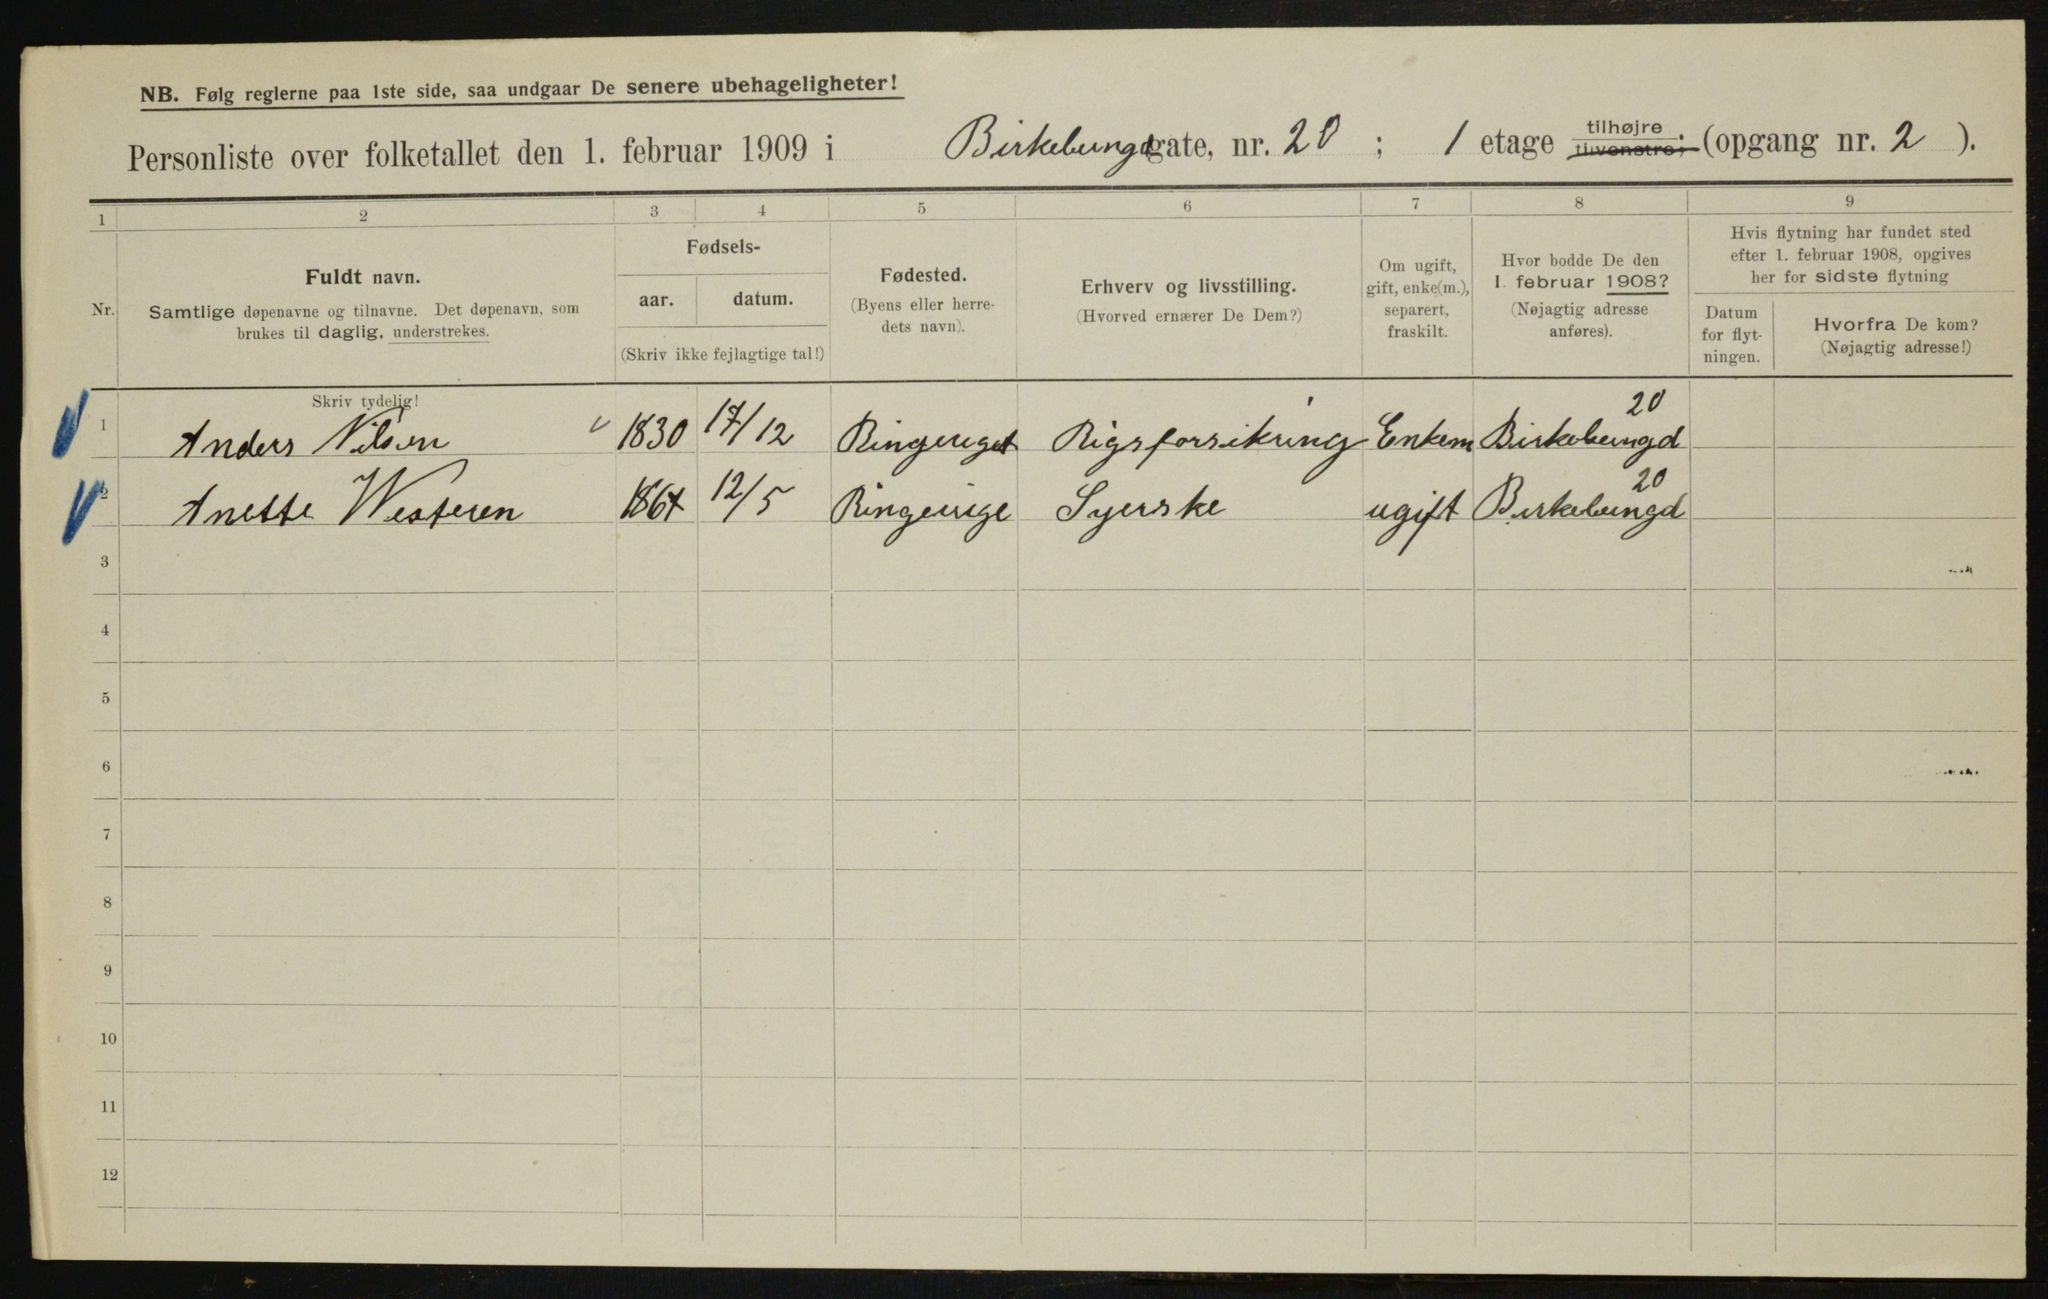 NB. Følg reglerne paa 1ste side, saa undgaar De senere ubehageligheter!
Personliste over folketallet den 1. februar 1909 i Birkebungd gate, nr. 20 ; 1 etage tilhøjre tilvenstre; (opgang nr. 2 ).
1 2 3 4 5 6 7 8 9
Nr.
Fuldt navn.
Samtlige døpenavne og tilnavne. Det døpenavn, som
brukes til daglig, understrekes.
Fødsels-
aar. datum.
(Skriv ikke fejlagtige tal!)
Fødested.
(Byens eller herre-
dets navn).
Erhverv og livsstilling.
(Hvorved ernærer De Dem?)
Om ugift,
gift, enke(m.),
separert,
fraskilt.
Hvor bodde De den
1. februar 1908?
(Nøjagtig adresse
anføres).
Hvis flytning har fundet sted
efter 1. februar 1908, opgives
her for sidste flytning
Datum
for flyt-
ningen.
Hvorfra De kom?
(Nøjagtig adresse!)
Skriv tydelig!
1 Anders Nilsen 1830 17/12 Ringeriget Rigsforsikring Enkem Birkebungd 20
2 Anette Westeren 1864 12/5 Ringerige Syerske ugift Birkebungd 20
3
4
5
6
7
8
9
10
11
12